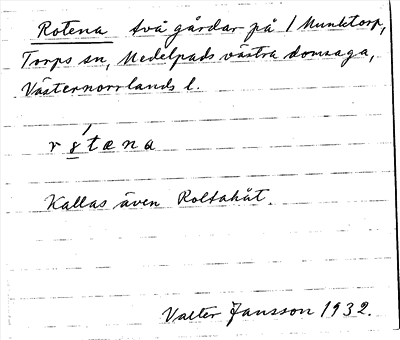 Rotena två gårdar på / Munktorp,
Torps sn, Medelpads västra domsaga,
Västernorrlands l.
Kallas även
Valter Jansson 1932.